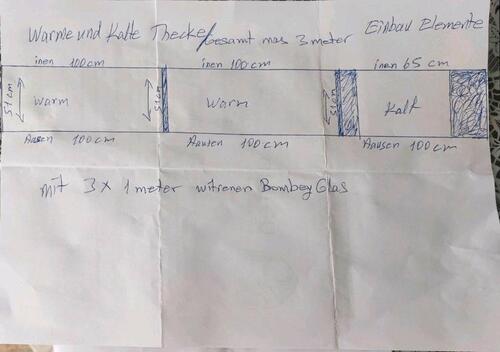 Warme und Kalte Thecke/Gesamt mas 3 meter Einbau Elemente
inen 100 cm inen 100 cm inen 65 cm
51 cm Warm 51 cm Warm 51 cm Kalt
Ausen 100 cm Aausen 100 cm Aausen 100 cm
mit 3 x 1 meter witrenen Bombey Glas